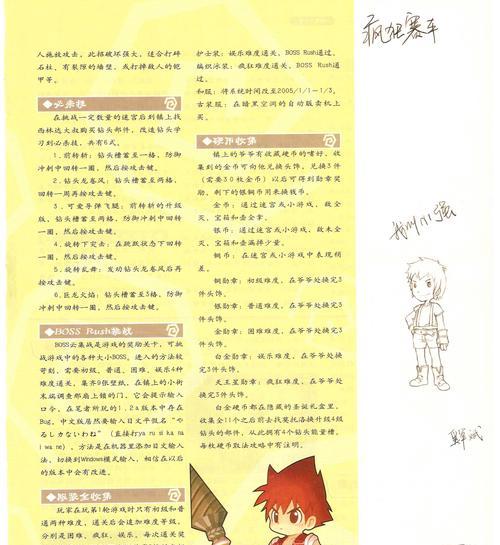 人施放攻击，此招破坏强大，适合打碎
石柱、有裂隙的墙壁，或打掉敌人的铠
甲等。
必杀技
在挑战一定数量的迷宫后到镇上找
西林达大叔购买钻头部件，改造钻头学
习到必杀技，共有6式。
1.前转斩：钻头槽蓄至一格，防御
冲刺中回转一圈，然后按攻击键。
2.钻头龙卷风：钻头槽蓄至两格，
回转一周再按攻击键。
3.可爱寻弹飞腿：前转斩的升级
版，钻头槽蓄至两格，防御冲刺中回转
一圈，然后按攻击键。
4.旋转下突击：在跳跃状态下回转
一圈，然后按攻击键。
5.旋转乱舞：发动钻头龙卷风后再
按攻击键。
6.巨龙火焰：钻头槽蓄至3格，防御
冲刺中回转一圈，然后按攻击键。
BOSS Rush挑战
BOSS云集战是游戏的奖励关卡，可挑
战游戏中的各种大小BOSS。进入的方法较
苛刻，需要初级、普通、困难、娱乐4种
难度通关，集齐9张壁纸，在镇上的小街
末端调查那扇上锁的门，它会提示输入
口令，在笔者所玩的1.2a版本中存在
Bug，中文版居然要输入日文平假名"や
るしかないわね"（直接打ya ru si ka na
i wa ne），方法是在机器里添加日文输入
法，切换到Windows模式输入，相信在以后
的版本中会有改进。
服装全收集
玩家在玩第1轮游戏时只有初级和普
通两种难度，通关后会追加难度等级，
分别是困难、疯狂、娱乐，每次通关奖
护士装：娱乐难度通关、BOSS Rush通过。
编织泳装：疯狂难度通关、BOSS Rush通
过。
和服：将系统时间改至2005/1/1—1/3。
古装服：在暗黑空洞的自动贩卖机上
买。
硬币收集
镇上的爷爷有收藏硬币的嗜好，收
集到的金币可向他兑换头饰，兑换3件
（需要30枚金币）以后可得到勋章奖
励，剩下的银铜币用来换钱币。
金币：通过迷宫或小游戏，敌全
灭、宝箱和壶全拿。
银币：通过迷宫或小游戏，敌未全
灭、宝箱和壶漏掉少量。
铜币：在迷宫或小游戏中表现稍
差。
铜勋章：初级难度，在爷爷处换完3
件头饰。
银勋章：普通难度，在爷爷处换完3
件头饰。
金勋章：困难难度，在爷爷处换完3
件头饰。
白金勋章：娱乐难度，在爷爷处换
完3件头饰。
天王星勋章：疯狂难度，在爷爷处
换完3件头饰。
白金硬币都在隐藏的圣诞礼盒里，
收集全11个之后前去找莫托洛换升级4级
钻头的部件，从此拥有4个钻头能量槽。
每枚硬币取法攻略中有注明。
疯狂赛车